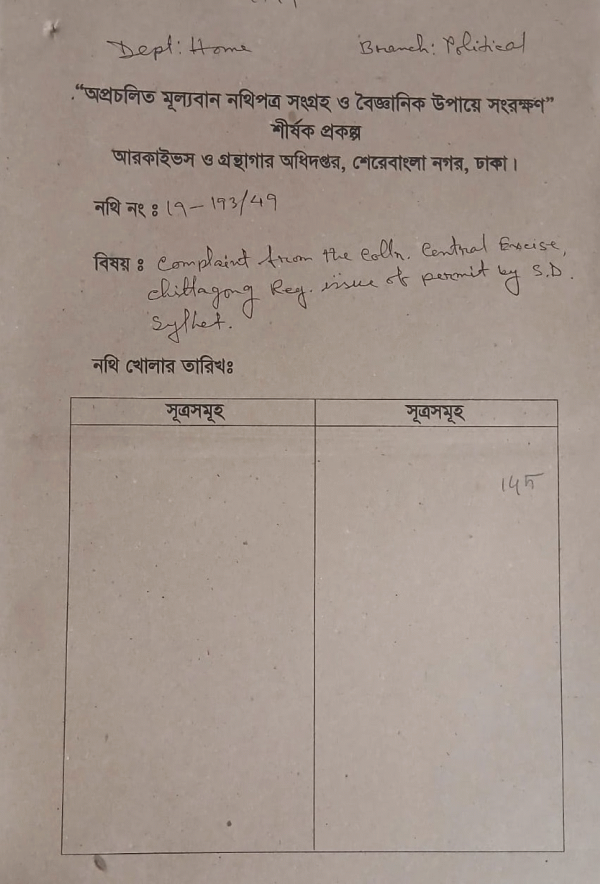 Dept: Home Branch: Political
"অপ্রচলিত মূল্যবান নথিপত্র সংগ্রহ ও বৈজ্ঞানিক উপায়ে সংরক্ষণ"
শীর্ষক প্রকল্প
আরকাইভস ও গ্রন্থাগার অধিদপ্তর, শেরেবাংলা নগর, ঢাকা।
নথি নং : 19-193/49
বিষয় : Complaint from the Colln. Central Excise,
Chittagong Reg. issue of permit by S.D.
Sylhet.
নথি খোলার তারিখঃ
সূত্রসমূহ সূত্রসমূহ